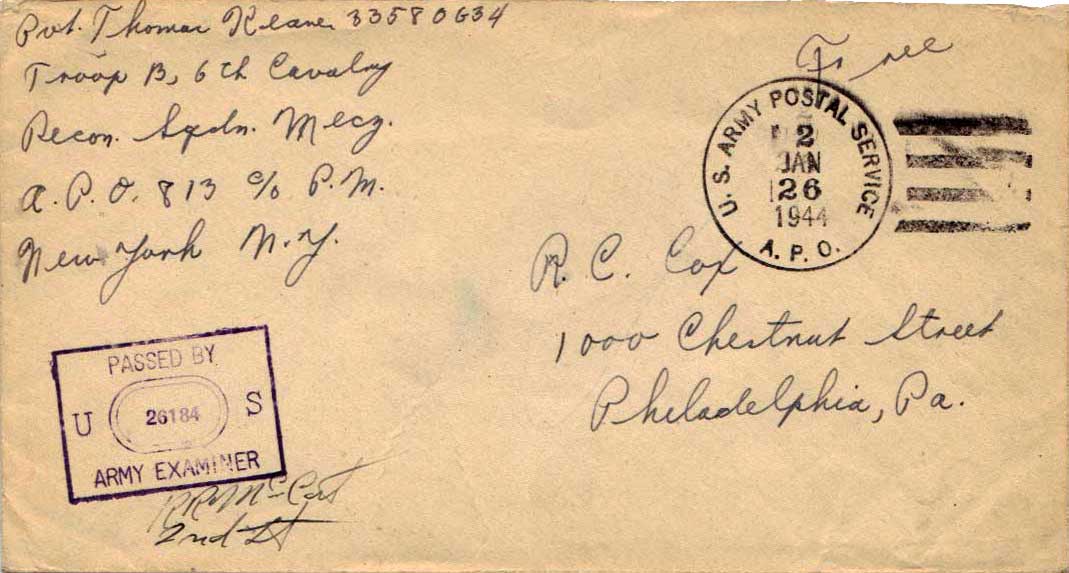 Pvt. Thomas Keane 33580634
Troop B, 6th Cavalry
Recon. Sqdn. Mecz.
A.P.O. 813 c/o P.M.
New York N.Y.
Free
U. S. ARMY POSTAL SERVICE
2
JAN
26
1944
A. P. O.
R. C. Cox
1000 Chestnut Street
Philadelphia, Pa.
PASSED BY
U 26184 S
ARMY EXAMINER
2nd Lt